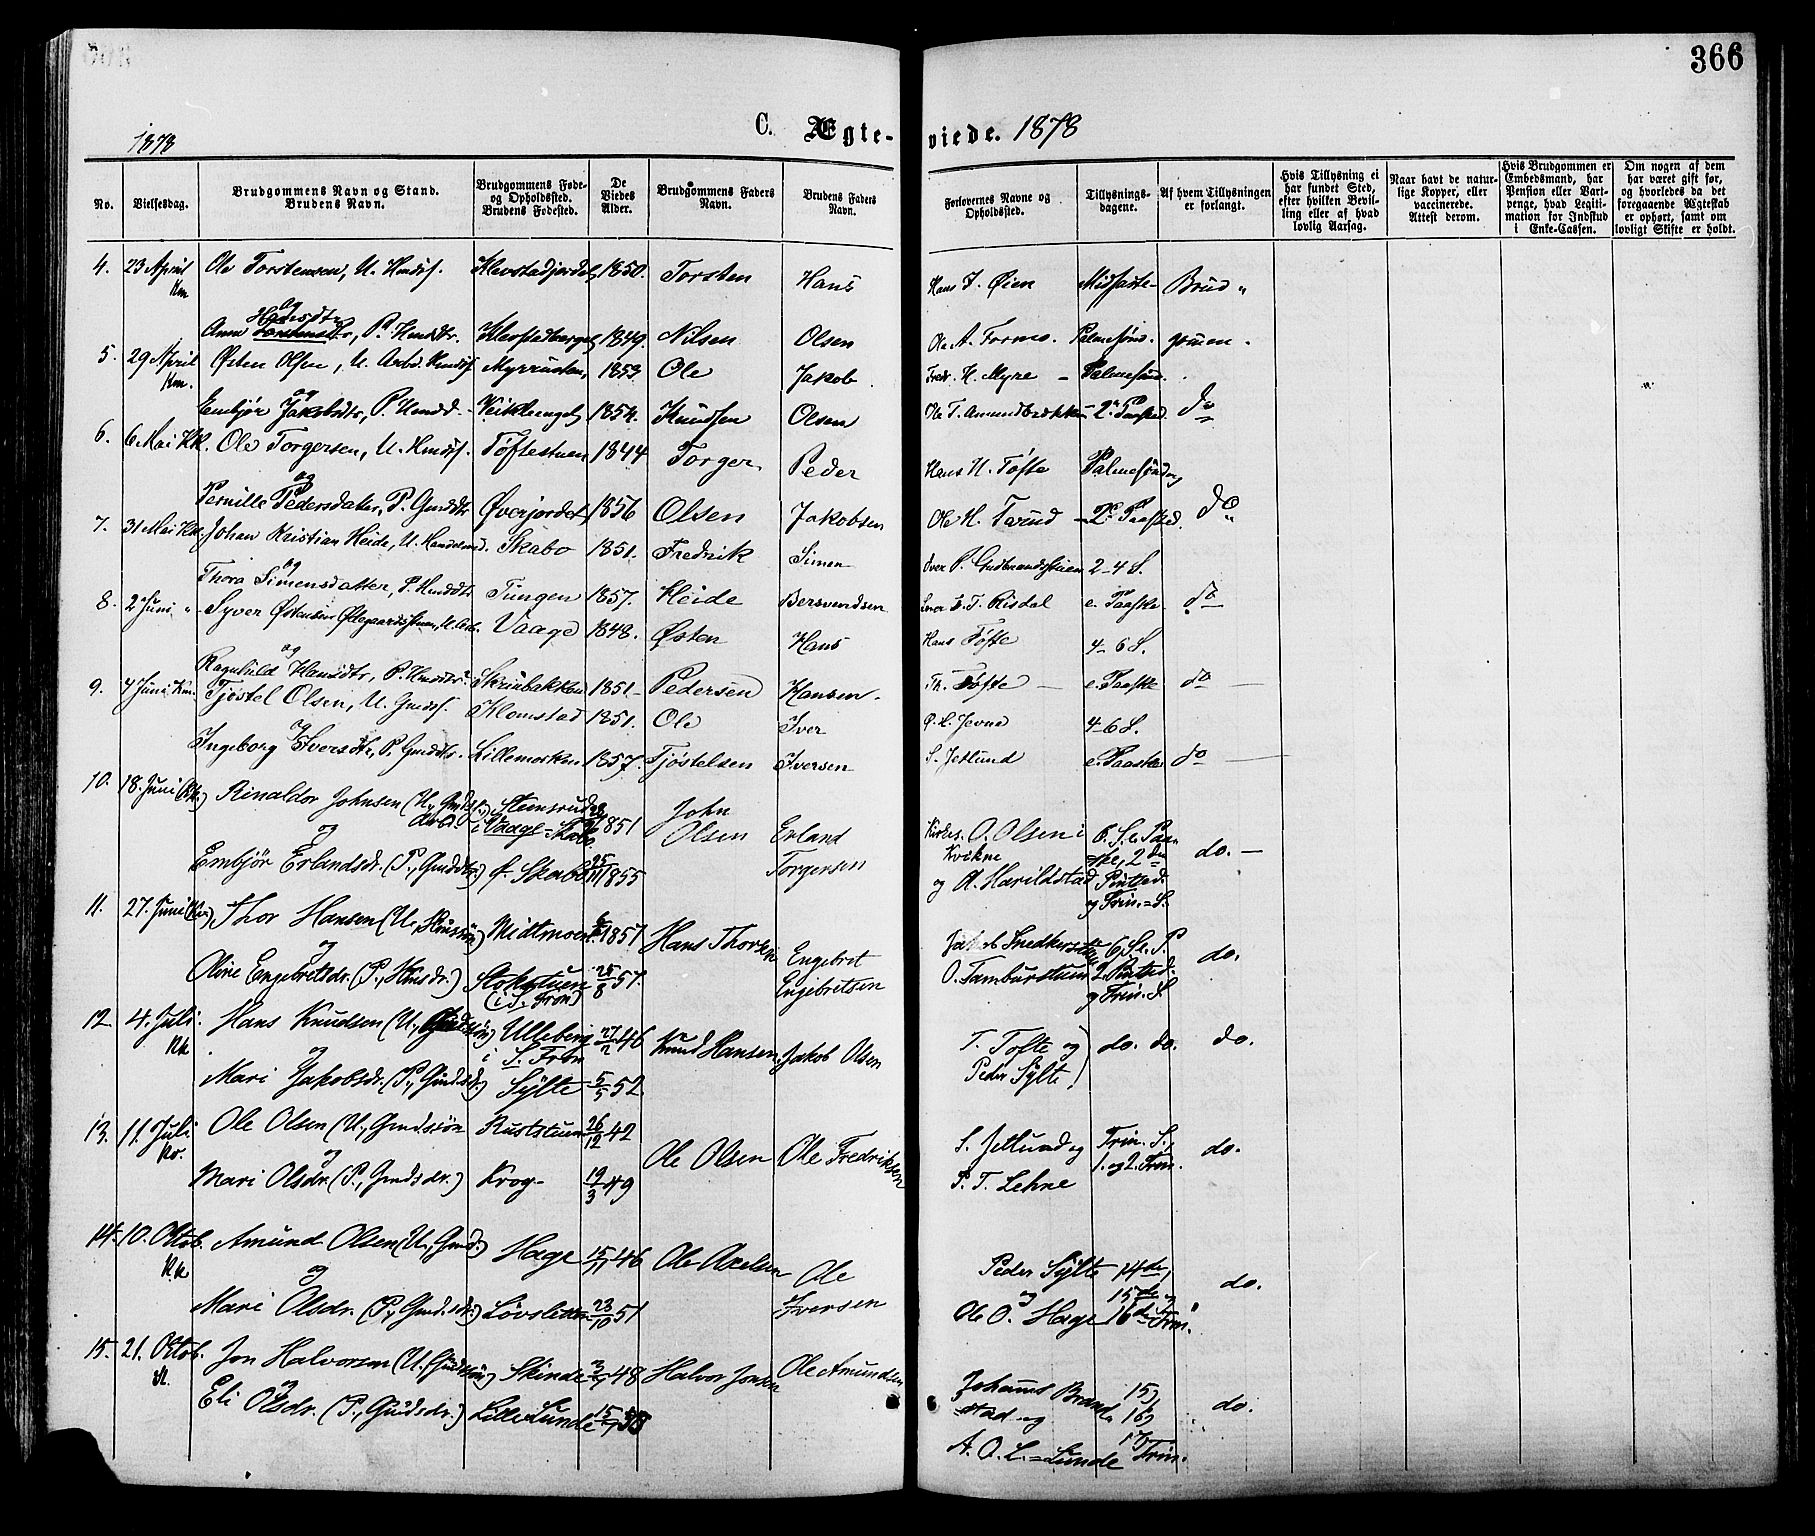 366
1878
C. Ægte-
viede. 1878
No.
Vielsesdag.
Brudgommens Navn og Stand.
Brudens Navn.
Brudgommens Føde-
og Opholdssted.
Brudens Fødested.
De
Viedes
Alder.
Brudgommens Faders
Navn.
Brudens Faders
Navn.
Forlovernes Navne og
Opholdssted.
Tillysnings-
dagene.
Af hvem Tillysningen
er forlangt.
Hvis Tillysning ei
har fundet Sted,
efter hvilken Bevil-
ling eller af hvad
lovlig Aarsag.
Naar havt de natur-
lige Kopper, eller
vaccinerede.
Attest derom.
Hvis Brudgommen er
Embedsmand, har
Pension eller Vart-
penge, hvad Legiti-
mation for Indskud
i Enke-Cassen.
Om nogen af dem
har været gift før,
og hvorledes da det
foregaaende Ægteskab
er ophørt, samt om
lovligt Skifte er holdt.
4. 23 April Ole Torstensen, U. Hmdsf. Klevstadjordet 1850. Torsten Hans Hans J. Øien Midfaste- Brud "
Km
og
Hansdtr
Anne Torstensdtr, P. Hmdsdtr. Klevstadberget 1849. Nilsen Olsen Ole A. Formo. Palmesønd. gommen.
5. 29 April Østen Olsen, U. Arbd. Hmdsf. Myrrusten 1853 Ole Jakob Fredr. H. Myre - Palmesønd.
Km.
og
Embjør Jakobsdtr, P. Hmdsd. Veiklenget 1854. Knudsen Olsen Ole T. Amundbækken 2 Paasked. do
6. 6. Mai Kk. Ole Torgersen, U. Hmdsf. Tøftestuen 1844 Torger Peder Hans H. Tøfte Palmesøndag
og
Pernille Pedersdatter, P. Gmdsdtr. Øverjordet 1856 Olsen Jakobsen Ole H. Tørud - 2 Paasked. do
7. 31 Mai Kk. Johan Kristian Heide, U. Handelsmd. Skabo 1851. Fredrik Simen Iver P. Gudbrandsstuen 2-4 S.
og
Thora Simensdatter, P. Hmdsdtr. Tungen 1857. Heide Bersvendsen Iver E. T. Risdal e. Paaske do
8. 2 Juni " Syver Østensen Øllegaardsstuen, U. Arb. Vaage 1848. Østen Hans Hans Tøfte 4-6 S.
og
Ragnhild Hansdtr, P. Hmdsdtr. Skrinbakken 1851- Pedersen Hansen. Th. Tøfte - e. Paaske do
9. 4 Juni Km. Tjøstel Olsen, U. Gmdsf. Klomstad 1851. Ole Iver O. H. Jevne 4-6 S.
og
Ingeborg Iversdtr, P. Gmdsdtr. Lillemoeken 1857. Tjøstelsen Iversen S. Jetlund e. Paaske do
10. 18. Juni (Kk.) Rinaldor Johnsen (U., Gmdsf.) Stensrud 1851 John Erland Kirkes. O. Olsen i 6. S. e. Paa-
i Vaage = Skabo Olsen Kvikne ske, 2den do.
og
Embjør Erlandsdr. (P., Gmdsdtr.) Ø. Skabo 25/11 1855 Torgersen og A. Harildstad Pintsed.
og Trin. = S.
11. 27. Juni (Km.) Thor Hansen (U., Hmssøn) Midtmoen 1851 Hans Thorsen Engebret Jakob Snedkerstuen 6. S. e. P.
og
Oline Engebretsdr. (P., Hmsdr.) Stokstuen 25/8 57. Engebretsen O. Tamburstuen 2. Pintsed. do.
(i S. Fron) og Trin. S.
12. 4. Juli. Hans Knudsen (U., Gmdssøn) Ulleberg 27/2 46 Knud Hansen. Jakob Olsen T. Tofte og do. do. do.
Kk i S. Fron
og
Mari Jakobsdr. (P., Gmdsdr.) Sylte 5/5 52. Peder Sylte
13. 11. Juli Ole Olsen (U., Gmdssøn Ruststuen 26/12 42 Ole Olsen Ole Fredriksen S. Jetlund og Trin. S., do.
Ko.
og
Mari Olsdr. (P., Gmdsdr.) Krog- 19/3 49 P. T. Lehne 1. og 2. Trin.
14. 10. Oktob. Amund Olsen (U., Gmd.) Hage 15/11 46 Ole Axelsen Ole Peder Sylte 14de,
Kk
og
Mari Olsdr. (P., Gmd.sdr.) Løvslitten 23/10 51 Iversen og 15de og do.
Ole O. Hage 16de Trin.
15. 21. Oktob. Jon Halvorsen (U. Gmdssøn) Skinde 3/7 48 Halvor Jonsen Ole Amundsen Johannes Brand- 15,
Kl.
og
Eli Olsdr. (P., Gmdsdr.) Lille Lunde 15/7 53 stad og 16, do.
A. O. L. = Lunde 17 Trin.